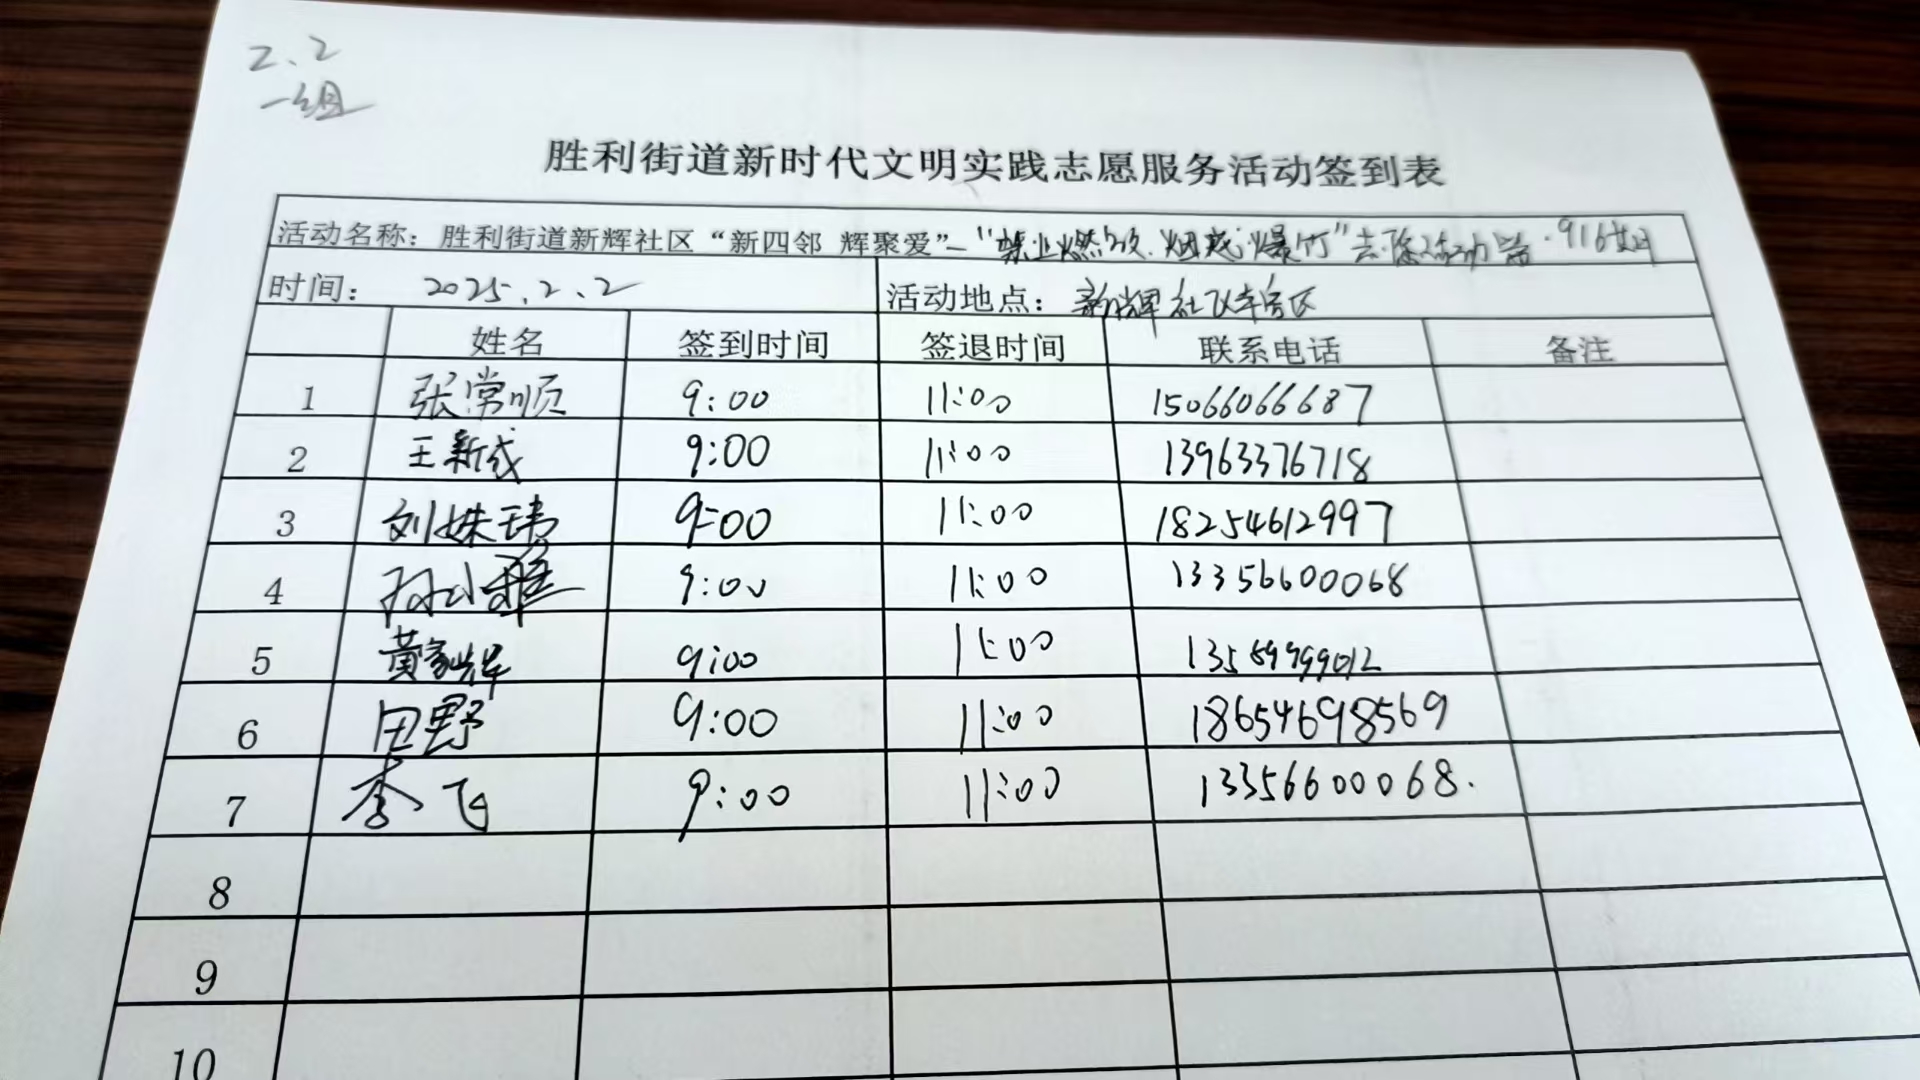 2、2
一组
胜利街道新时代文明实践志愿服务活动签到表
活动名称：胜利街道新辉社区“新四邻 辉聚爱”—“禁止燃放烟花爆竹”
时间： 2025.2.2 活动地点：新辉社区
姓名 签到时间 签退时间 联系电话 备注
1 张常顺 9:00 11:00 15066066687
2 王新成 9:00 11:00 13963376718
3 刘姝玮 9:00 11:00 18254612997
4 孙小雅 9:00 11:00 13356600068
5 黄家辉 9:00 11:00 13589999012
6 田野 9:00 11:00 18654698569
7 李飞 9:00 11:00 13356600068.
8
9
10